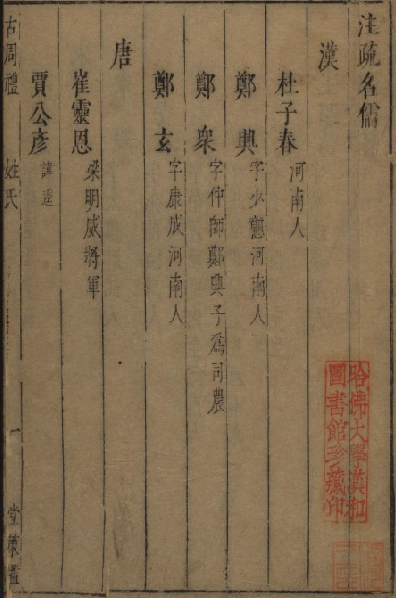 注疏名儒
漢
杜子春 河南人
鄭興 字少贛河南人
鄭眾 字仲師鄭興子爲司農
鄭玄 字康成河南人
唐
崔靈恩 梁明威將軍
賈公彥
古周禮 姓氏 一
哈佛大學漢和
圖書館珍藏印